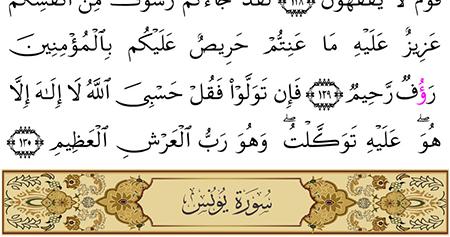 قَوْمٌ لَّا يَفْقَهُونَ ١٢٨ لَقَدْ جَآءَكُمْ رَسُولٌ مِّنْ أَنفُسِكُمْ
عَزِيزٌ عَلَيْهِ مَا عَنِتُّمْ حَرِيصٌ عَلَيْكُم بِالْمُؤْمِنِينَ
رَؤُفٌ رَّحِيمٌ ١٢٩ فَإِن تَوَلَّوْا۟ فَقُلْ حَسْبِىَ اللَّهُ لَآ إِلَـٰهَ إِلَّا
هُوَۖ عَلَيْهِ تَوَكَّلْتُۖ وَهُوَ رَبُّ الْعَرْشِ الْعَظِيمِ ١٣٠
سُورَةُ يُونُسَ